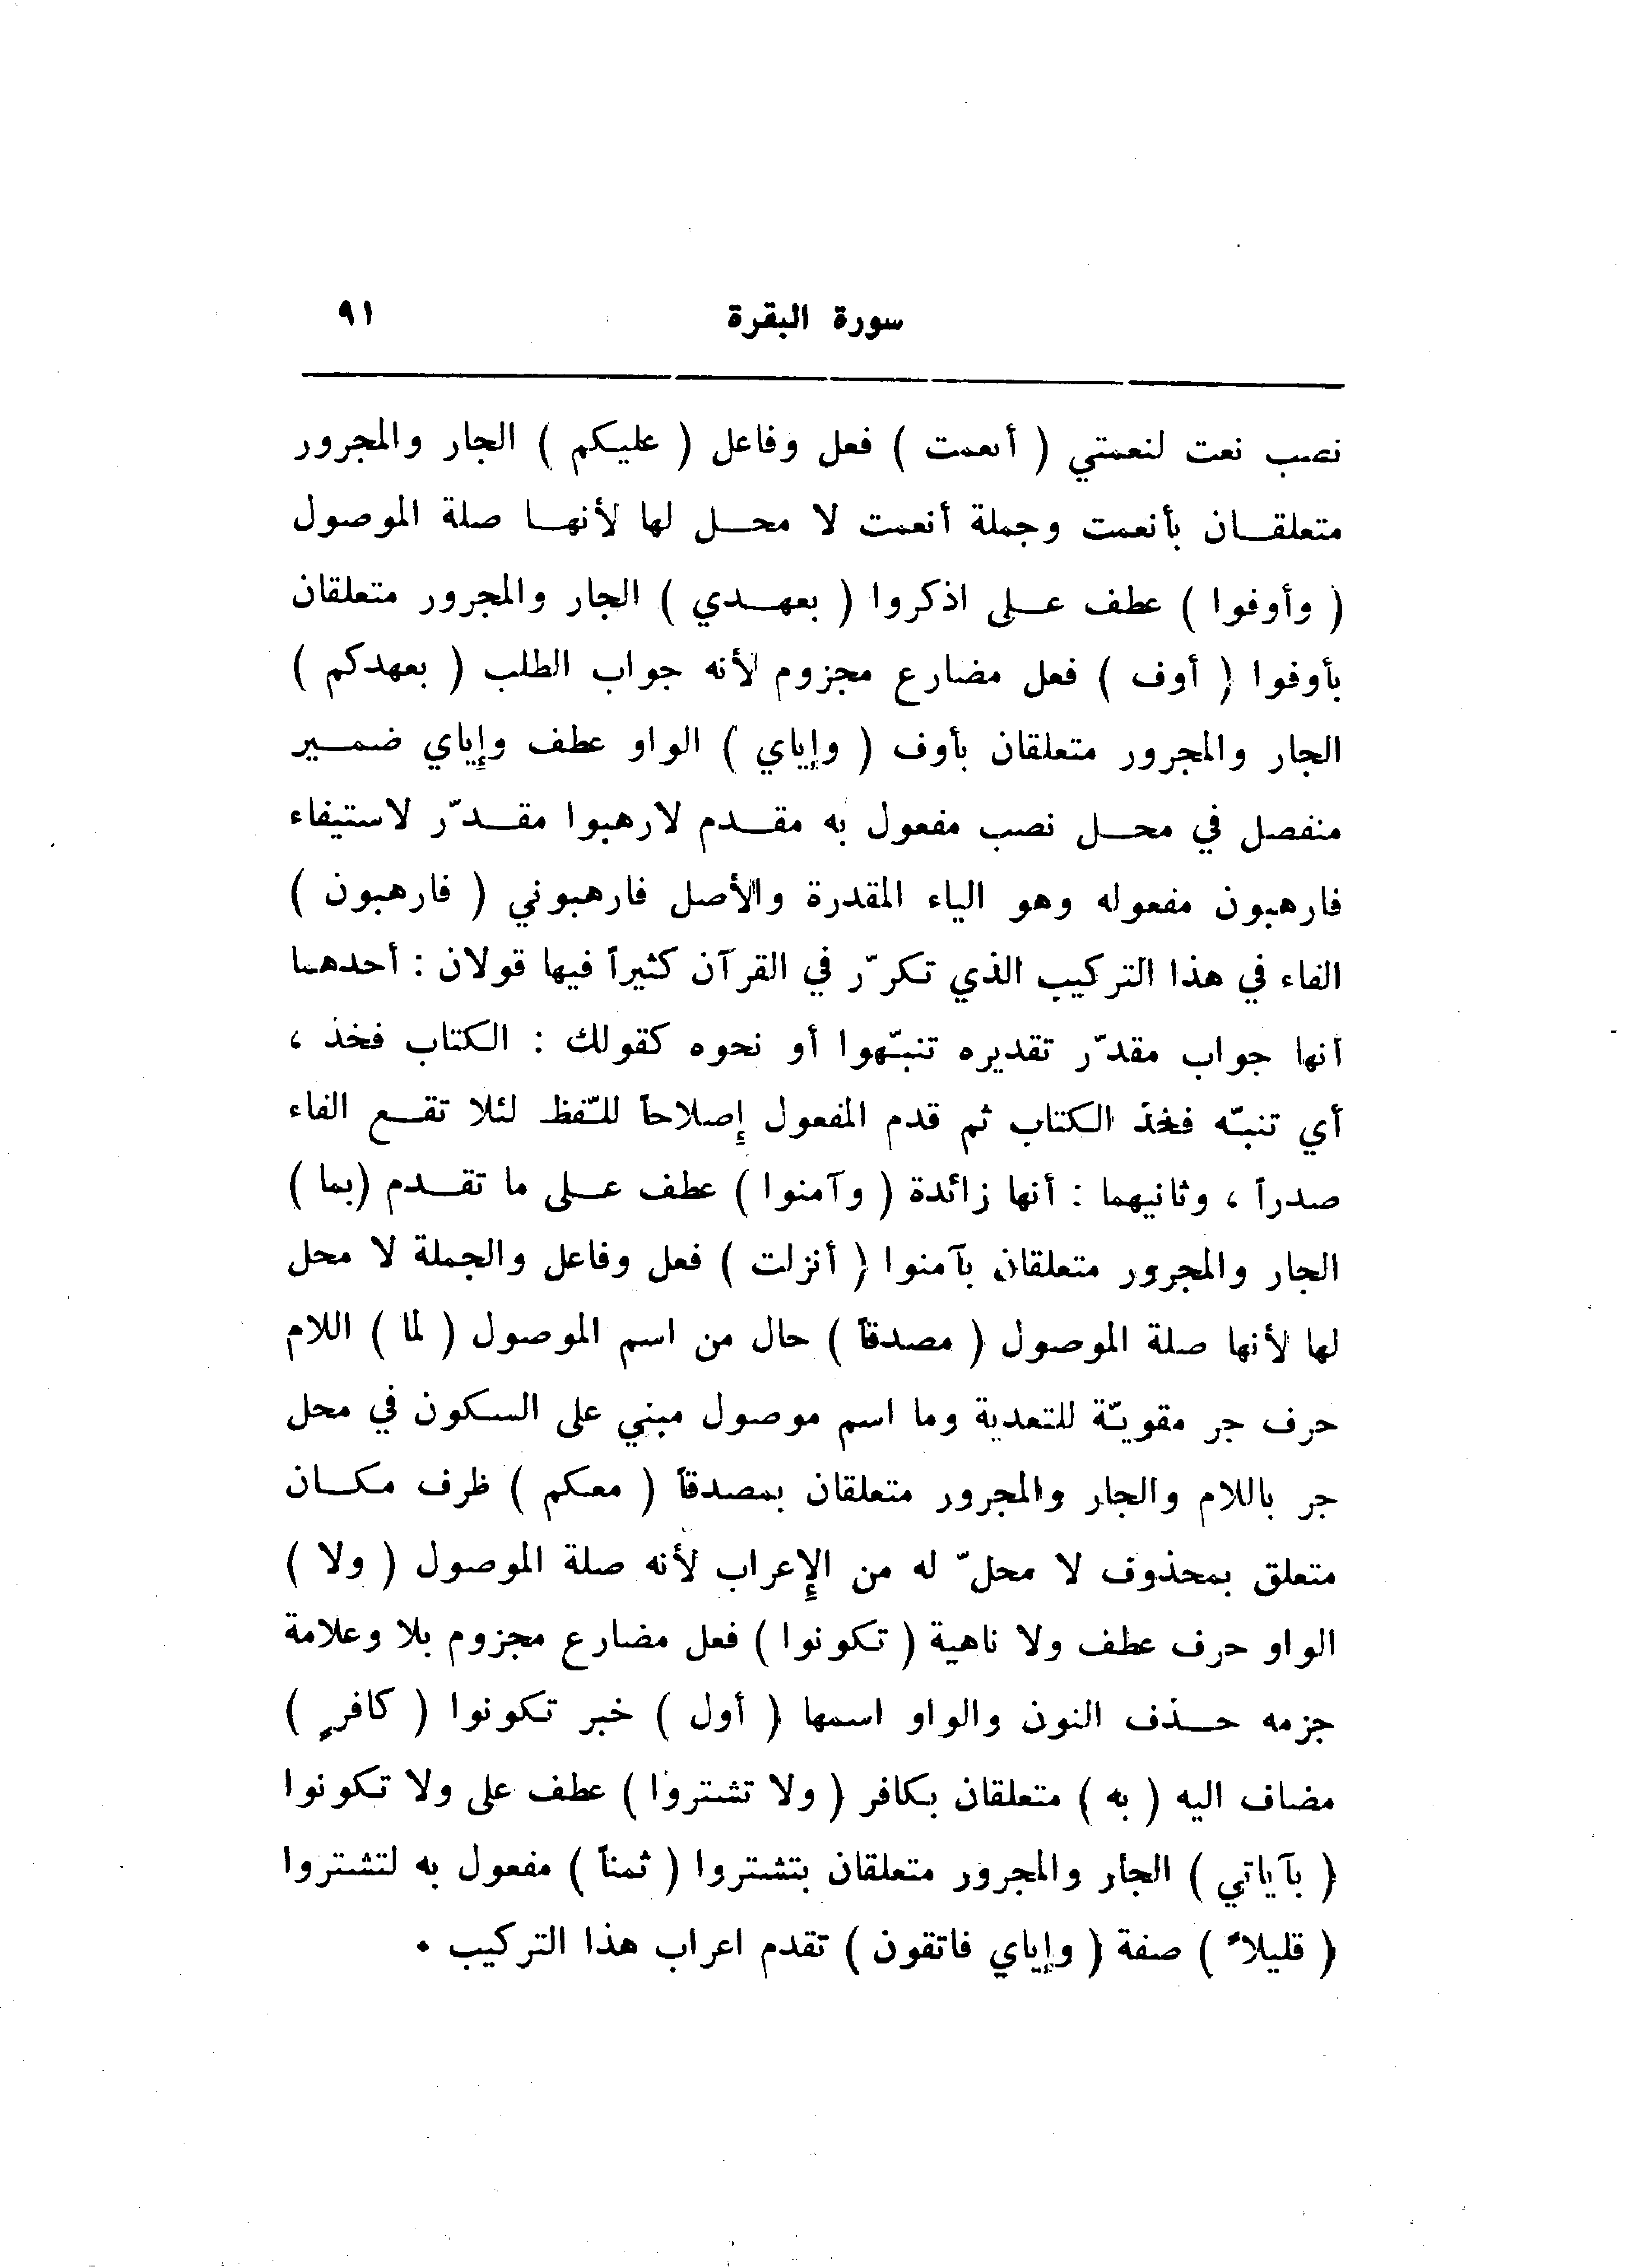 سورة البقرة ٩١
نصب نعت لنعمتي ( أنعمت ) فعل وفاعل ( عليكم ) الجار والمجرور
متعلقــان بأنعمت وجملة أنعمت لا محــل لها لأنهــا صلة الموصول
( وأوفوا ) عطف عــلى اذكروا ( بعهــدي ) الجار والمجرور متعلقان
بأوفوا ( أوف ) فعل مضارع مجزوم لأنه جواب الطلب ( بعهدكم )
الجار والمجرور متعلقان بأوف ( وإياي ) الواو عطف وإياي ضمــير
منفصل في محــل نصب مفعول به مقــدم لارهبوا مقــدّر لاستيفاء
فارهبون مفعوله وهو الياء المقدرة والأصل فارهبوني ( فارهبون )
الفاء في هذا التركيب الذي تكرّر في القرآن كثيراً فيها قولان : أحدهما
أنها جواب مقدّر تقديره تنبّهوا أو نحوه كقولك : الكتاب فخذ ،
أي تنبّه فخذ الكتاب ثم قدم المفعول إصلاحاً للّفظ لئلا تقــع الفاء
صدراً ، وثانيهما : أنها زائدة ( وآمنوا ) عطف عــلى ما تقــدم (بما )
الجار والمجرور متعلقان بآمنوا ( أنزلت ) فعل وفاعل والجملة لا محل
لها لأنها صلة الموصول ( مصدقاً ) حال من اسم الموصول ( لما ) اللام
حرف جر مقويّة للتعدية وما اسم موصول مبني على السكون في محل
جر باللام والجار والمجرور متعلقان بمصدقاً ( معكم ) ظرف مكــان
متعلق بمحذوف لا محلّ له من الإعراب لأنه صلة الموصول ( ولا )
الواو حرف عطف ولا ناهية ( تكونوا ) فعل مضارع مجزوم بلا وعلامة
جزمه حــذف النون والواو اسمها ( أول ) خبر تكونوا ( كافرٍ )
مضاف اليه ( به ) متعلقان بكافر ( ولا تشتروا ) عطف على ولا تكونوا
( بآياتي ) الجار والمجرور متعلقان بتشتروا ( ثمناً ) مفعول به لتشتروا
( قليلاً ) صفة ( وإياي فاتقون ) تقدم اعراب هذا التركيب .